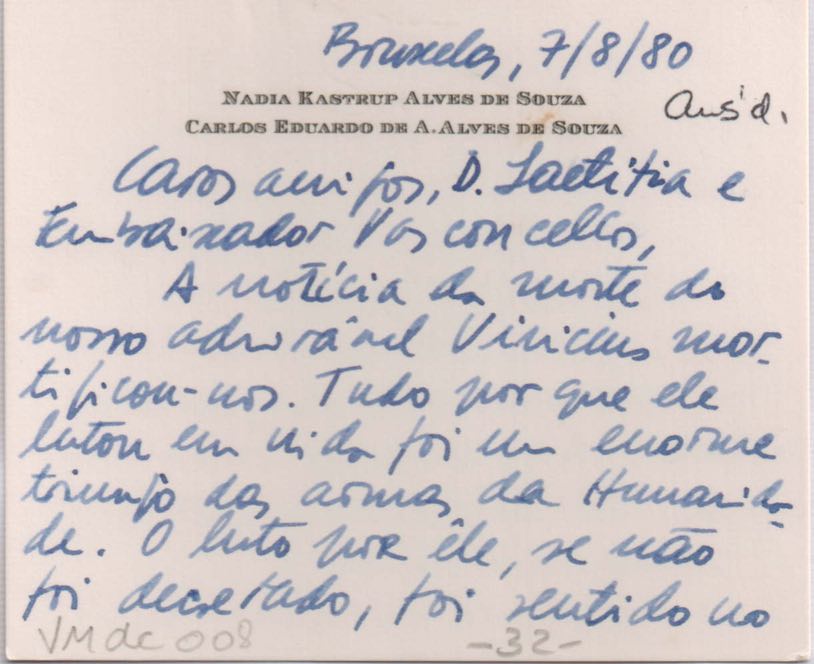 Bruxelas, 7/8/80
NADIA KASTRUP ALVES DE SOUZA
CARLOS EDUARDO DE A. ALVES DE SOUZA
Caros amigos, D. Laetitia e
Embaixador Vasconcellos,
A notícia da morte do
nosso adorável Vinicius mor-
tificou-nos. Tudo por que ele
lutou em vida foi um enorme
triunfo das armas da Humanida-
de. O luto por êle, se não
foi decretado, foi sentido no
VMdc 008
-32-